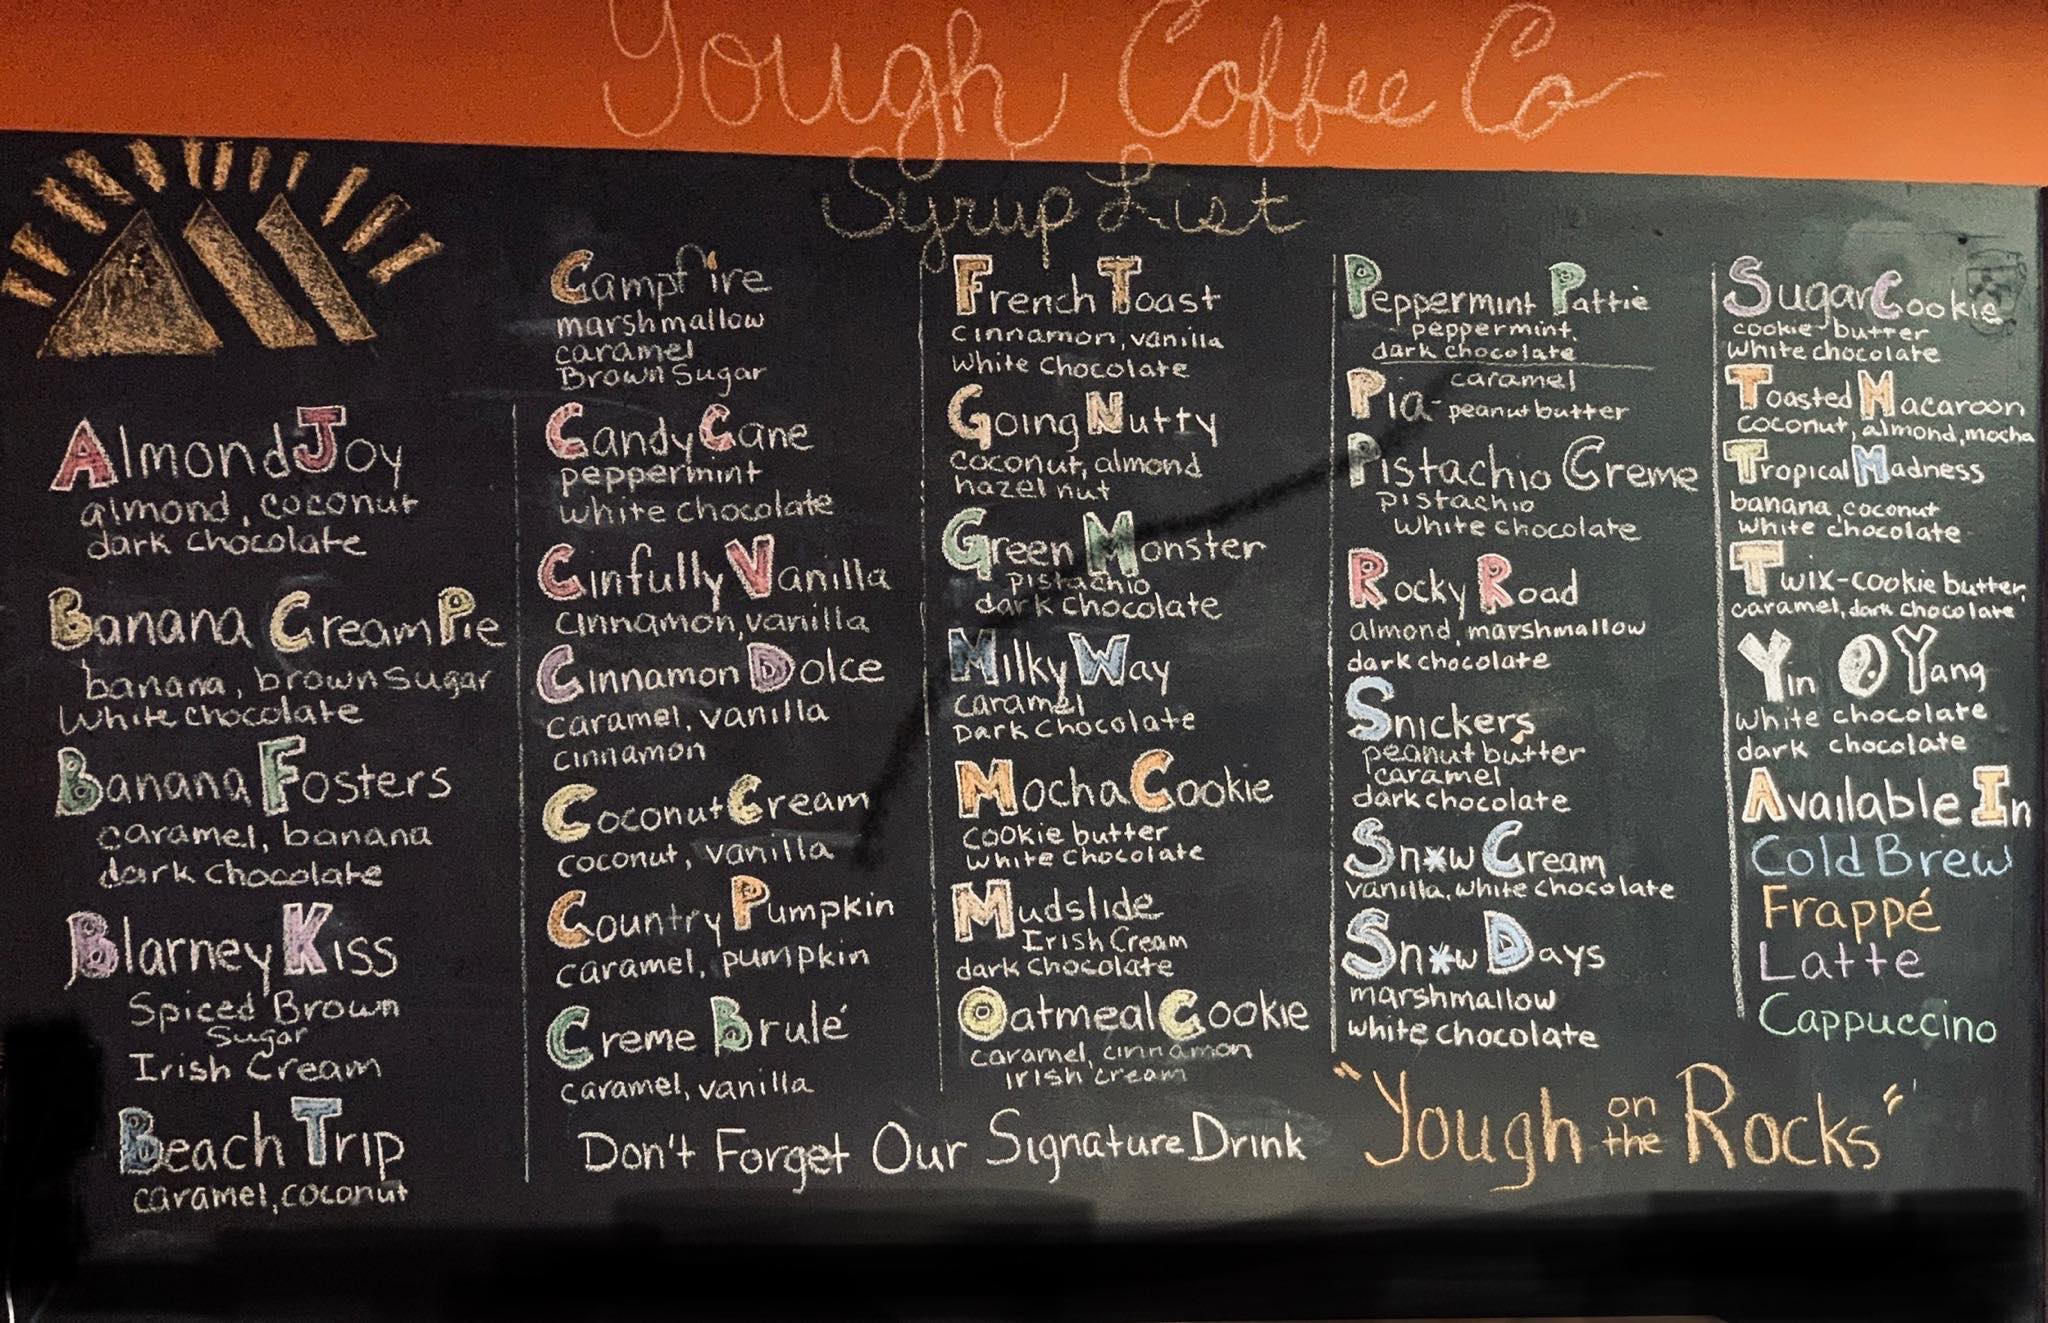 Yough Coffee Co
Syrup List
Almond Joy
almond, coconut
dark chocolate
Banana Cream Pie
banana, brown sugar
White chocolate
Banana Fosters
caramel, banana
dark chocolate
Blarney Kiss
Spiced Brown
Sugar
Irish Cream
Beach Trip
caramel, coconut
Campfire
marshmallow
caramel
Brown Sugar
Candy Cane
peppermint
white chocolate
Cinfully Vanilla
cinnamon, vanilla
Cinnamon Dolce
caramel, vanilla
cinnamon
Coconut Cream
coconut, vanilla
Country Pumpkin
caramel, pumpkin
Creme Brulé
caramel, vanilla
French Toast
cinnamon, vanilla
White Chocolate
Going Nutty
coconut, almond
hazel nut
Green Monster
pistachio
dark chocolate
Milky Way
caramel
Dark Chocolate
Mocha Cookie
cookie butter
White Chocolate
Mudslide
Irish Cream
dark chocolate
Oatmeal Cookie
caramel, cinnamon
irish cream
Peppermint Pattie
peppermint,
dark chocolate
caramel
Pia- peanut butter
Pistachio Creme
pistachio
White chocolate
Rocky Road
almond, marshmallow
dark chocolate
Snickers
peanut butter
caramel
dark chocolate
Sn*w Cream
vanilla, white chocolate
Sn*w Days
marshmallow
white chocolate
Sugar Cookie
cookie butter
White chocolate
Toasted Macaroon
coconut, almond, mocha
Tropical Madness
banana, coconut
white chocolate
Twix-cookie butter,
caramel, dark chocolate
Yin Yang
White chocolate
dark chocolate
Available In
Cold Brew
Frappé
Latte
Cappuccino
Don't Forget Our Signature Drink "Yough on the Rocks"